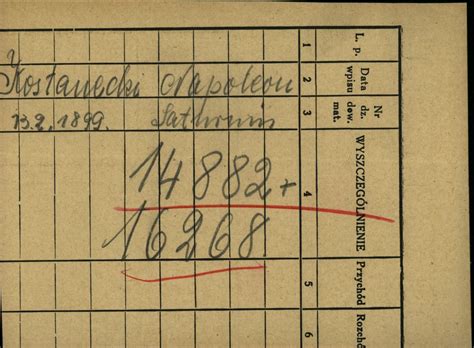 Kostanecki Napoleon
13.2.1899. Saturnin
14882+
16268
L. p.
Data wpisu
Nr dz. dow. mat.
WYSZCZEGÓLNIENIE
Przychód
Rozchó
1
2
3
4
5
6